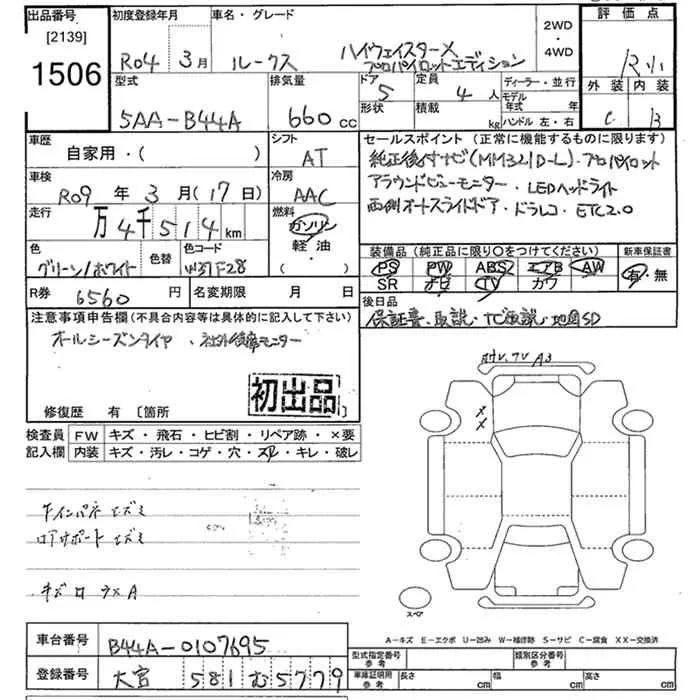 出品番号 初度登録年月 車名・グレード 2WD・4WD 評価点
[2139]
1506 R04年3月 ルークス ハイウェイスターX
プロパイロットエディション
型式 排気量 ドア 定員 ディーラー・並行 外装 内装
5AA-B44A 660cc 5 4人 モデル年式 年 C B
形状 積載 kg ハンドル 左・右
車歴 シフト セールスポイント(正常に機能するものに限ります)
自家用・( ) AT 純正後付ナビ(MM321D-L)・プロパイロット
車検 冷房 アラウンドビューモニター・LEDヘッドライト
R09年3月(17日) AAC 両側オートスライドドア・ドラレコ・ETC2.0
走行 燃料
万4千514km ガソリン
軽油
・( )
色 色替 色コード 装備品(純正品に限り○をつけてください) 新車保証書
グリーン/ホワイト PS PW ABS エアB AW 有・無
SR ナビ TV カワ
R券 6560円 名変期限 月 日 後日品
注意事項申告欄(不具合内容等は具体的に記入して下さい) 保証書・取説・
オールシーズンタイヤ、社外後席モニター 地図SD
初出品
修復歴 有 [箇所 ]
検査員記入欄 FW キズ・飛石・ヒビ割・リペア跡・×要
内装 キズ・汚レ・コゲ・穴・スレ・キレ・破レ
スペア
A-キズ E-エクボ U-凹み W-補修跡 S-サビ C-腐食 XX-交換済
車台番号 B44A-0107695
型式指定番号 参考 類別区分番号 参考
登録番号 大宮 581 む 5779
車庫証明用 参考 長さ cm 幅 cm 高さ cm